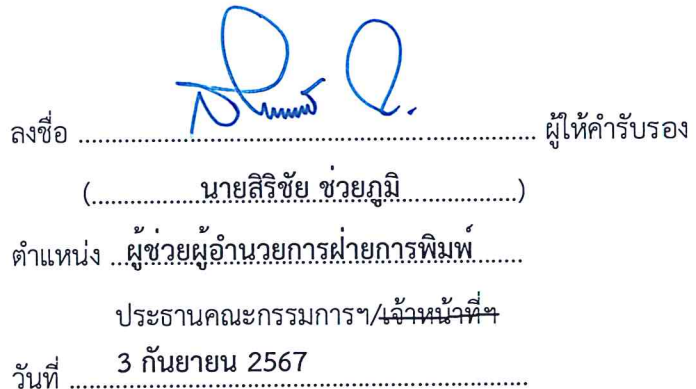 ลงชื่อ ........................................................................ ผู้ให้คำรับรอง
(...................นายสิริชัย ช่วยภูมิ.....................)
ตำแหน่ง ...ผู้ช่วยผู้อำนวยการฝ่ายการพิมพ์.......
ประธานคณะกรรมการฯ/เจ้าหน้าที่ฯ
วันที่ ........3 กันยายน 2567...................................